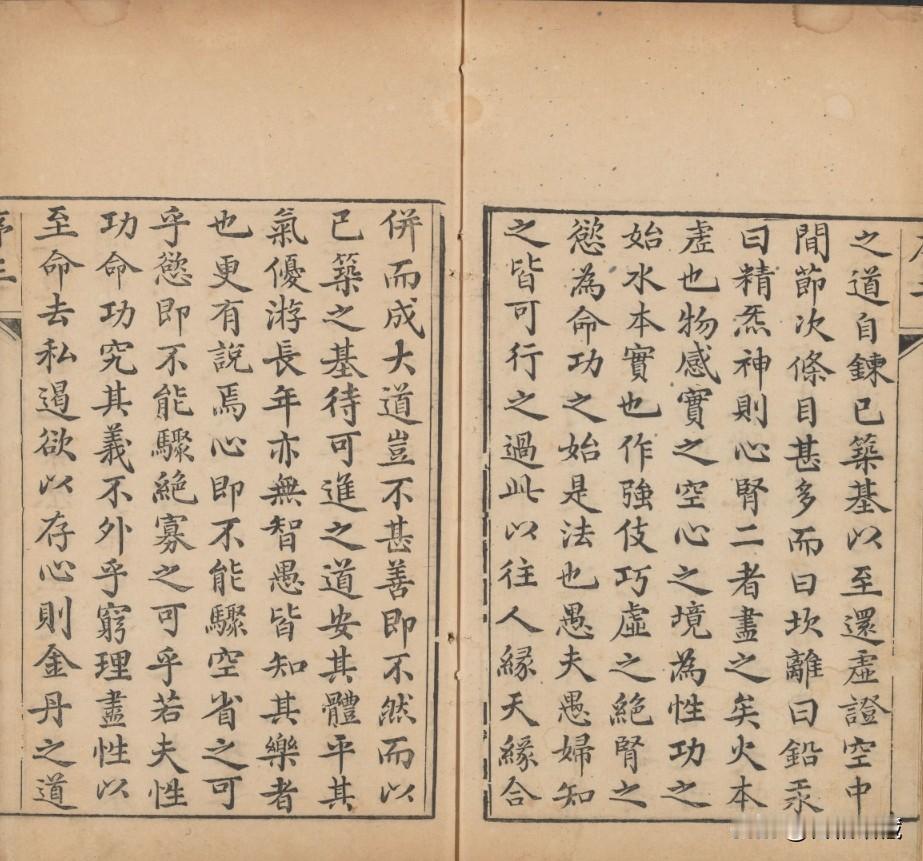 之道自鍊已築基以至還虛證空中
間節次條目甚多而曰坎離曰鉛汞
曰精炁神則心腎二者盡之矣火本
虛也物感實之空心之境為性功之
始水本實也作強伎巧虛之絕腎之
慾為命功之始是法也愚夫愚婦知
之皆可行之過此以往人緣天緣合
併而成大道豈不甚善即不然而以
已築之基待可進之道安其體平其
氣優游長年亦無智愚皆知其樂者
也更有說焉心即不能驟空省之可
乎慾即不能驟絕寡之可乎若夫性
功命功究其義不外乎窮理盡性以
至命去私遏欲以存心則金丹之道
序三